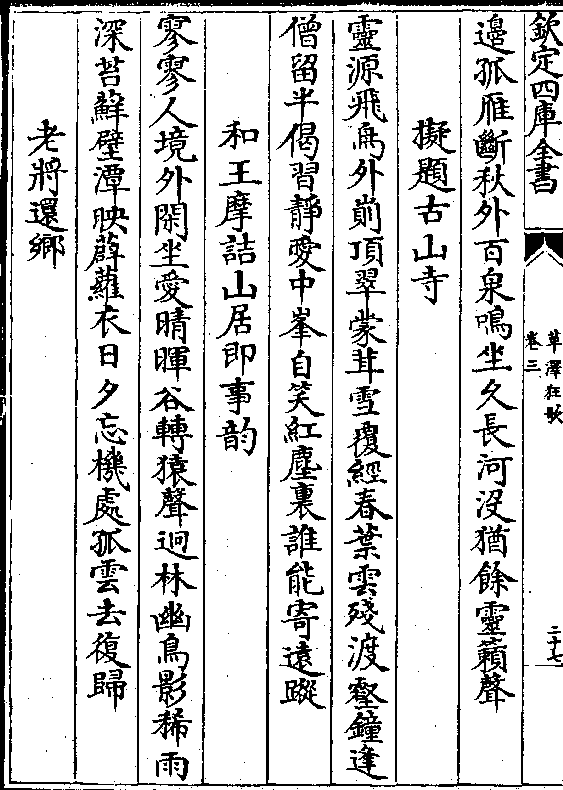 欽定四庫全書
草澤狂歌
卷三
二十七
邊孤雁斷秋外百泉鳴坐久長河沒猶餘靈籟聲
擬題古山寺
靈源飛鳥外崱頂翠蒙茸雪覆經春葉雲殘渡壑鐘逢
僧留半偈習靜愛中峯自笑紅塵裏誰能寄遠蹤
和王摩詰山居即事韵
寥寥人境外閑坐愛晴暉谷轉猿聲迥林幽鳥影稀雨
深苔蘚壁潭映薜蘿衣日夕忘機處孤雲去復歸
老將還鄉